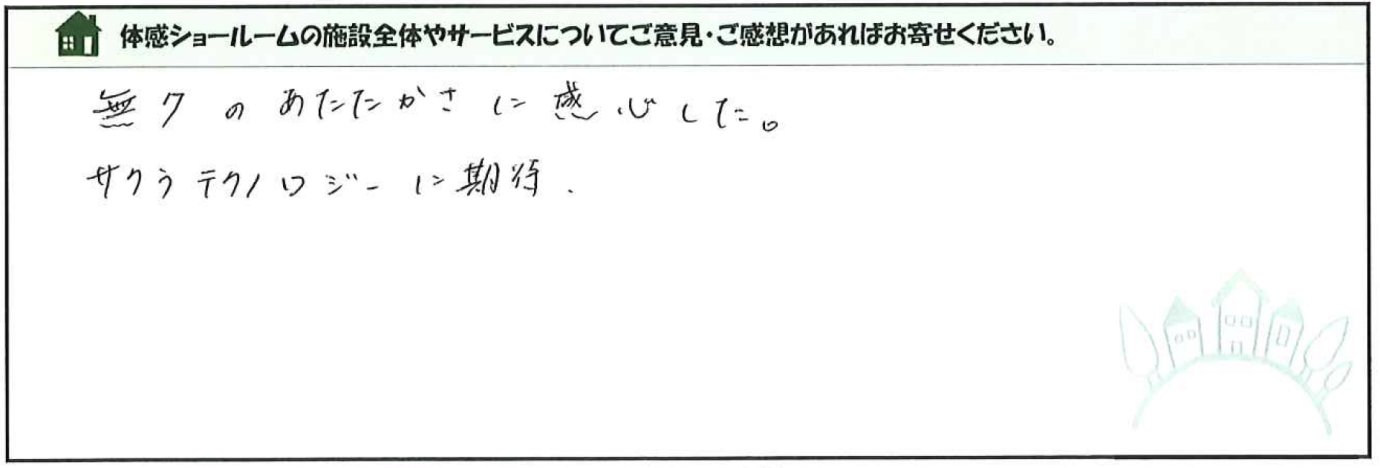 体感ショールームの施設全体やサービスについてご意見・ご感想があればお寄せください。
無クのあたたかさに感心した。
サクラテクノロジーに期待.